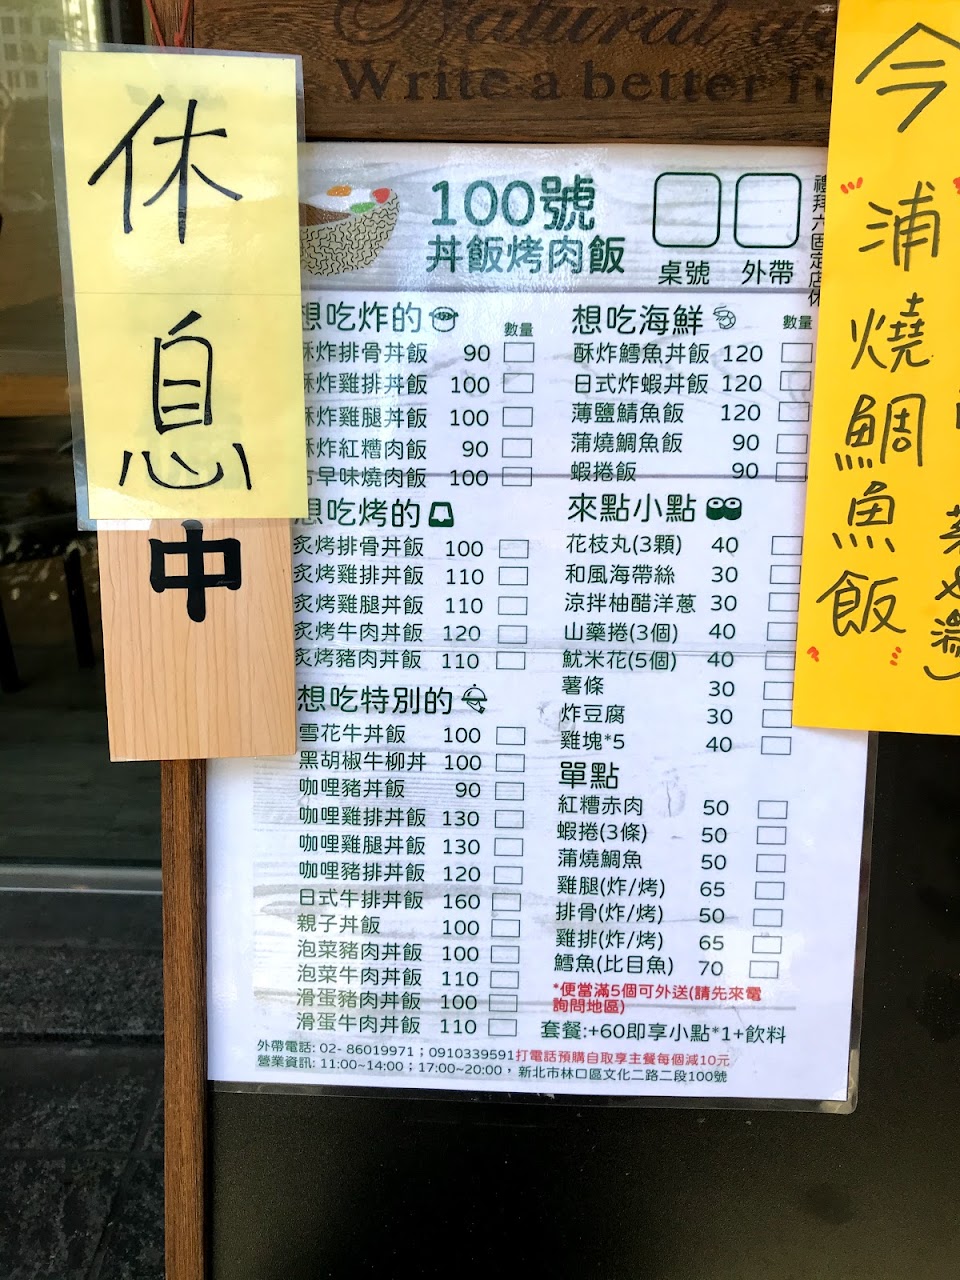 Natural
Write a better
休息
中
100號
丼飯烤肉飯
桌號 外帶
禮拜六固定店休
想吃炸的 數量
酥炸排骨丼飯 90
酥炸雞排丼飯 100
酥炸雞腿丼飯 100
酥炸紅糟肉飯 90
古早味燒肉飯 100
想吃烤的
炙烤排骨丼飯 100
炙烤雞排丼飯 110
炙烤雞腿丼飯 110
炙烤牛肉丼飯 120
炙烤豬肉丼飯 110
想吃特別的
雪花牛丼飯 100
黑胡椒牛柳丼 100
咖哩豬丼飯 90
咖哩雞排丼飯 130
咖哩雞腿丼飯 130
咖哩豬排丼飯 120
日式牛排丼飯 160
親子丼飯 100
泡菜豬肉丼飯 100
泡菜牛肉丼飯 110
滑蛋豬肉丼飯 100
滑蛋牛肉丼飯 110
想吃海鮮 數量
酥炸鱈魚丼飯 120
日式炸蝦丼飯 120
薄鹽鯖魚飯 120
蒲燒鯛魚飯 90
蝦捲飯 90
來點小點
花枝丸(3顆) 40
和風海帶絲 30
涼拌柚醋洋蔥 30
山藥捲(3個) 40
魷米花(5個) 40
薯條 30
炸豆腐 30
雞塊*5 40
單點
紅糟赤肉 50
蝦捲(3條) 50
蒲燒鯛魚 50
雞腿(炸/烤) 65
排骨(炸/烤) 50
雞排(炸/烤) 65
鱈魚(比目魚) 70
*便當滿5個可外送(請先來電
詢問地區)
套餐:+60即享小點*1+飲料
外帶電話: 02- 86019971；0910339591打電話預購自取享主餐每個減10元
營業資訊: 11:00~14:00；17:00~20:00， 新北市林口區文化二路二段100號
今
浦燒鯛魚飯